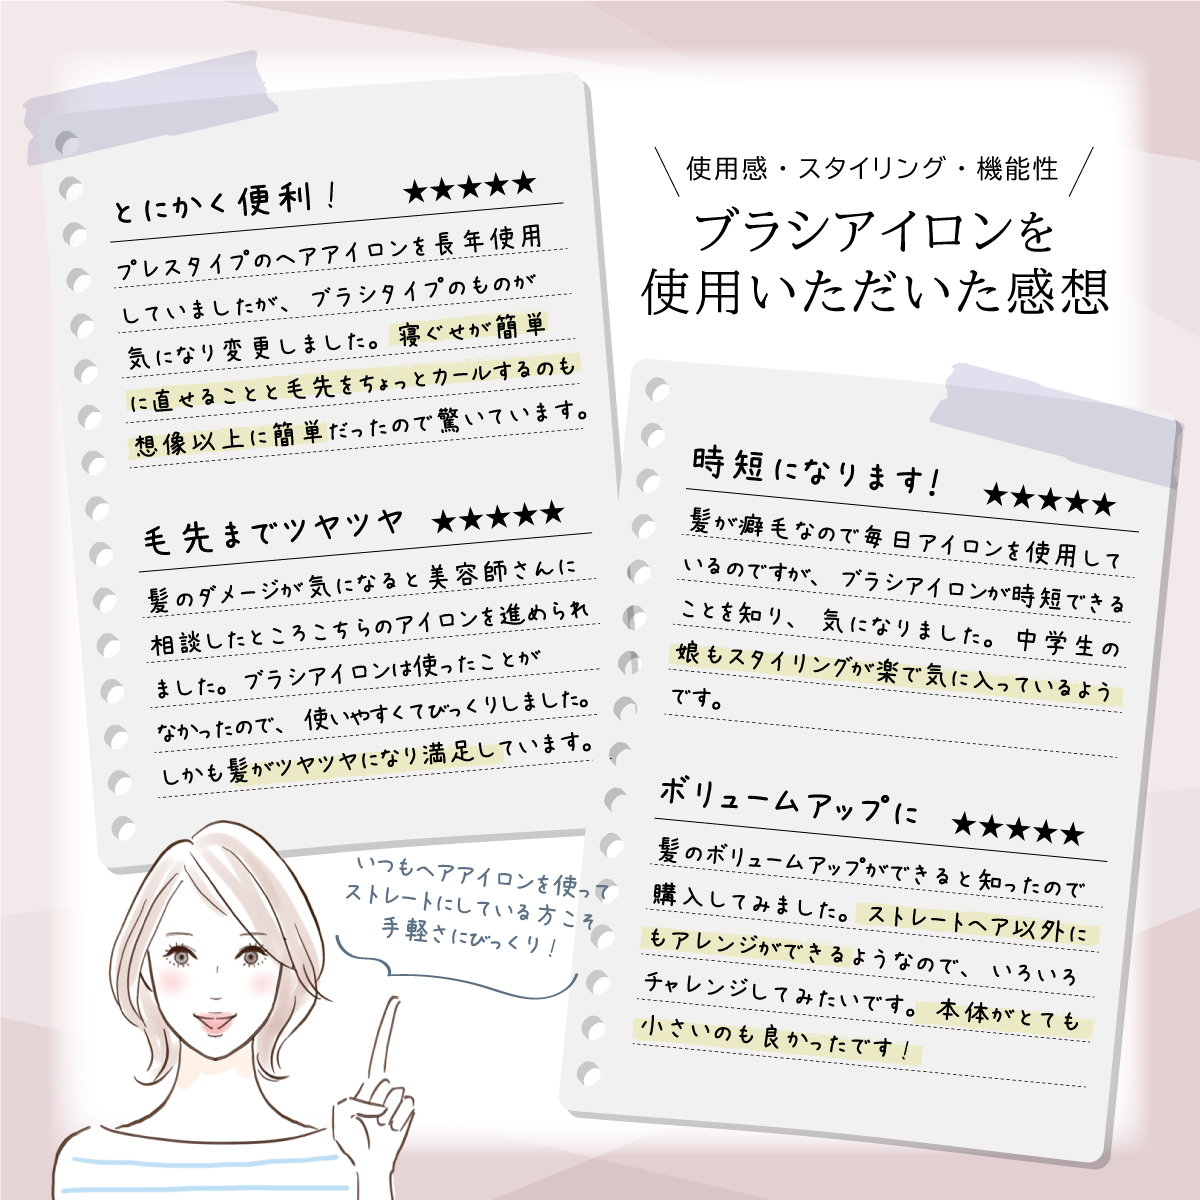 使用感・スタイリング・機能性
ブラシアイロンを
使用いただいた感想
とにかく便利！ ★★★★★
プレスタイプのヘアアイロンを長年使用
していましたが、ブラシタイプのものが
気になり変更しました。寝ぐせが簡単
に直せることと毛先をちょっとカールするのも
想像以上に簡単だったので驚いています。
毛先までツヤツヤ ★★★★★
髪のダメージが気になると美容師さんに
相談したところこちらのアイロンを進められ
ました。ブラシアイロンは使ったことが
なかったので、使いやすくてびっくりしました。
しかも髪がツヤツヤになり満足しています。
時短になります！ ★★★★★
髪が癖毛なので毎日アイロンを使用して
いるのですが、ブラシアイロンが時短できる
ことを知り、気になりました。中学生の
娘もスタイリングが楽で気に入っているよう
です。
ボリュームアップに ★★★★★
髪のボリュームアップができると知ったので
購入してみました。ストレートヘア以外に
もアレンジができるようなので、いろいろ
チャレンジしてみたいです。本体がとても
小さいのも良かったです！
いつもヘアアイロンを使って
ストレートにしている方こそ
手軽さにびっくり！